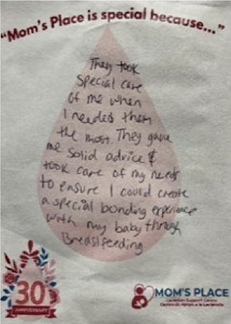 "Mom's Place is special because..."
They took
special care
of me when
I needed them
the most. They gave
me solid advice &
took care of my needs
to ensure I could create
a special bonding experience
with my baby through
Breastfeeding
30
ANNIVERSARY
MOM'S PLACE
Lactation Support Center